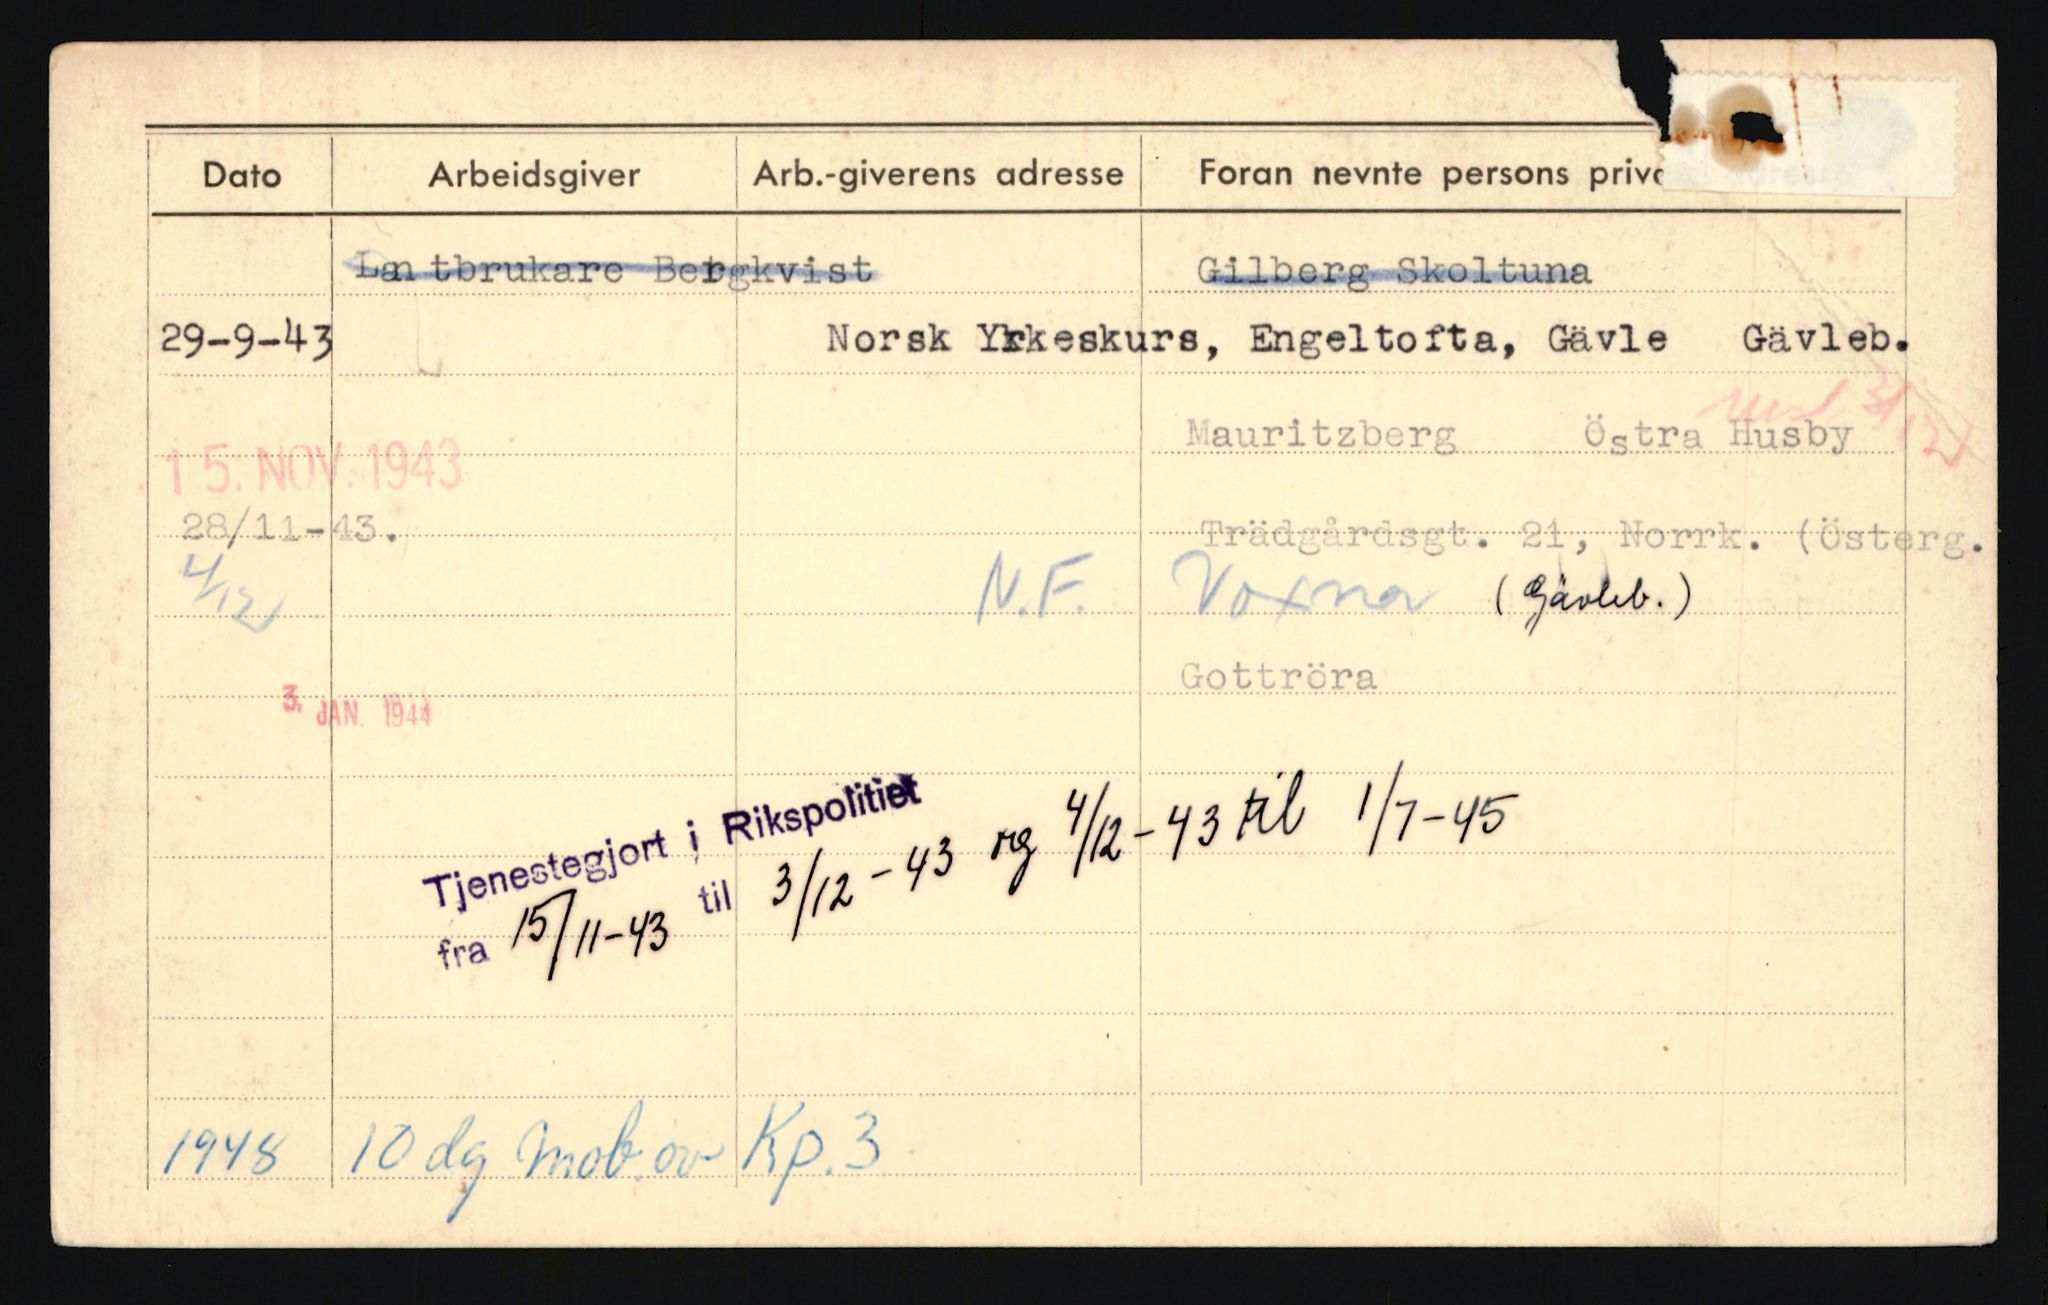 Dato Arbeidsgiver Arb.-giverens adresse Foran nevnte persons priva adresse
Lantbrukare Bergkvist Gilberg Skoltuna
29-9-43 Norsk Yrkeskurs, Engeltofta, Gävle Gävleb.
3/12
Mauritzberg Östra Husby
15. NOV. 1943
28/11-43. Trädgårdsgt. 21, Norrk. (Österg.
4/12 N.F. Voxna (Gävleb.)
Gottröra
3. JAN. 1944
Tjenestegjort i Rikspolitiet
fra 15/11-43 til 3/12-43 og 4/12-43 til 1/7-45
1948 10 dg Mob.öv Kp. 3